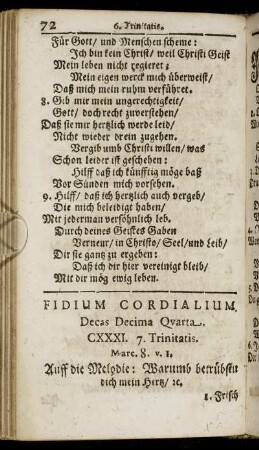 72 6. Trinitatis.
Für Gott/ und Menschen scheme:
Ich bin kein Christ/ weil Christi Geist
Mein leben nicht regieret;
Mein eigen werck mich überweist/
Daß mich mein ruhm verführet.
8. Gib mir mein ungerechtigkeit/
Gott/ doch recht zuverstehen/
Daß sie mir hertzlich werde leid/
Nicht wieder drein zugehen.
Vergib umb Christi willen/ was
Schon leider ist geschehen:
Hilff daß ich künfftig möge baß
Vor Sünden mich vorsehen.
9. Hilff/ daß ich hertzlich auch vergeb/
Die mich beleidigt haben/
Mit jederman versöhnlich leb.
Durch deines Geistes Gaben
Verneur/ in Christo/ Seel/und Leib/
Dir sie gantz zu ergeben:
Daß ich dir hier vereinigt bleib/
Mit dir mög ewig leben.
FIDIUM CORDIALIUM.
Decas Decima Qvarta.
CXXXI. 7. Trinitatis.
Marc. 8. v. 1.
Auff die Melodie: Warumb betrübstu
dich mein Hertz/ ꝛc.
1. Frisch